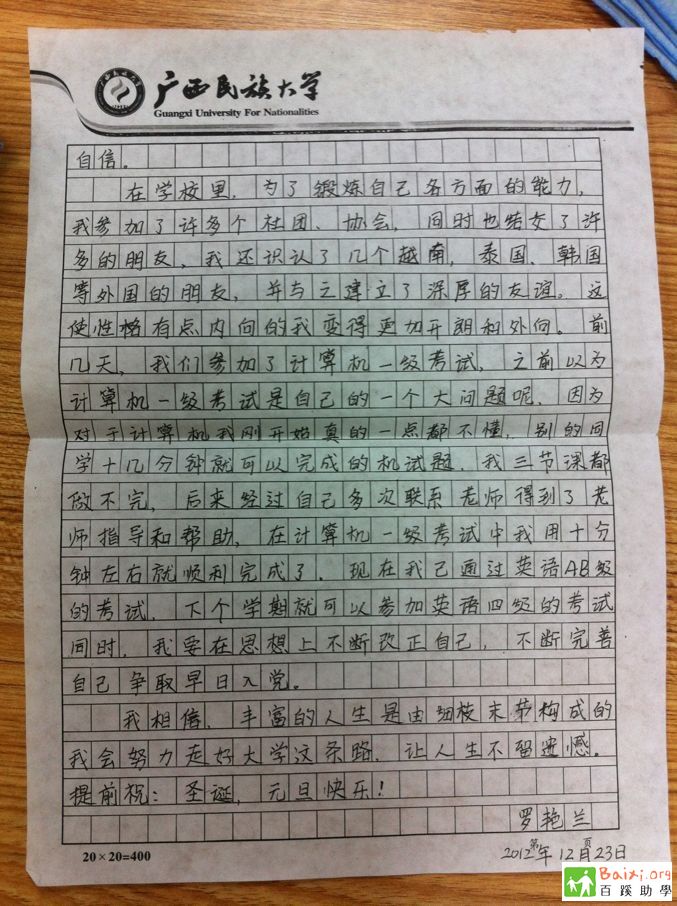 广西民族大学
Guangxi University For Nationalities
自信。
在学校里，为了锻炼自己各方面的能力，
我参加了许多个社团、协会，同时也结交了许
多的朋友，我还识认了几个越南，泰国、韩国
等外国的朋友，并与之建立了深厚的友谊。这
使性格有点内向的我变得更加开朗和外向。前
几天，我们参加了计算机一级考试，之前以为
计算机一级考试是自己的一个大问题呢，因为
对于计算机我刚开始真的一点都不懂，别的同
学十几分钟就可以完成的机试题，我三节课都
做不完，后来经过自己多次联系老师得到了老
师指导和帮助，在计算机一级考试中我用十分
钟左右就顺利完成了．现在我已通过英语AB级
的考试，下个学期就可以参加英语四级的考试
同时，我要在思想上不断改正自己，不断完善
自己争取早日入党。
我相信，丰富的人生是由细枝末节构成的
我会努力走好大学这条路，让人生不留遗憾。
提前祝：圣诞，元旦快乐！
罗艳兰
20×20=400
第 页
2012年12月23日
Baixi.org
百蹊助學